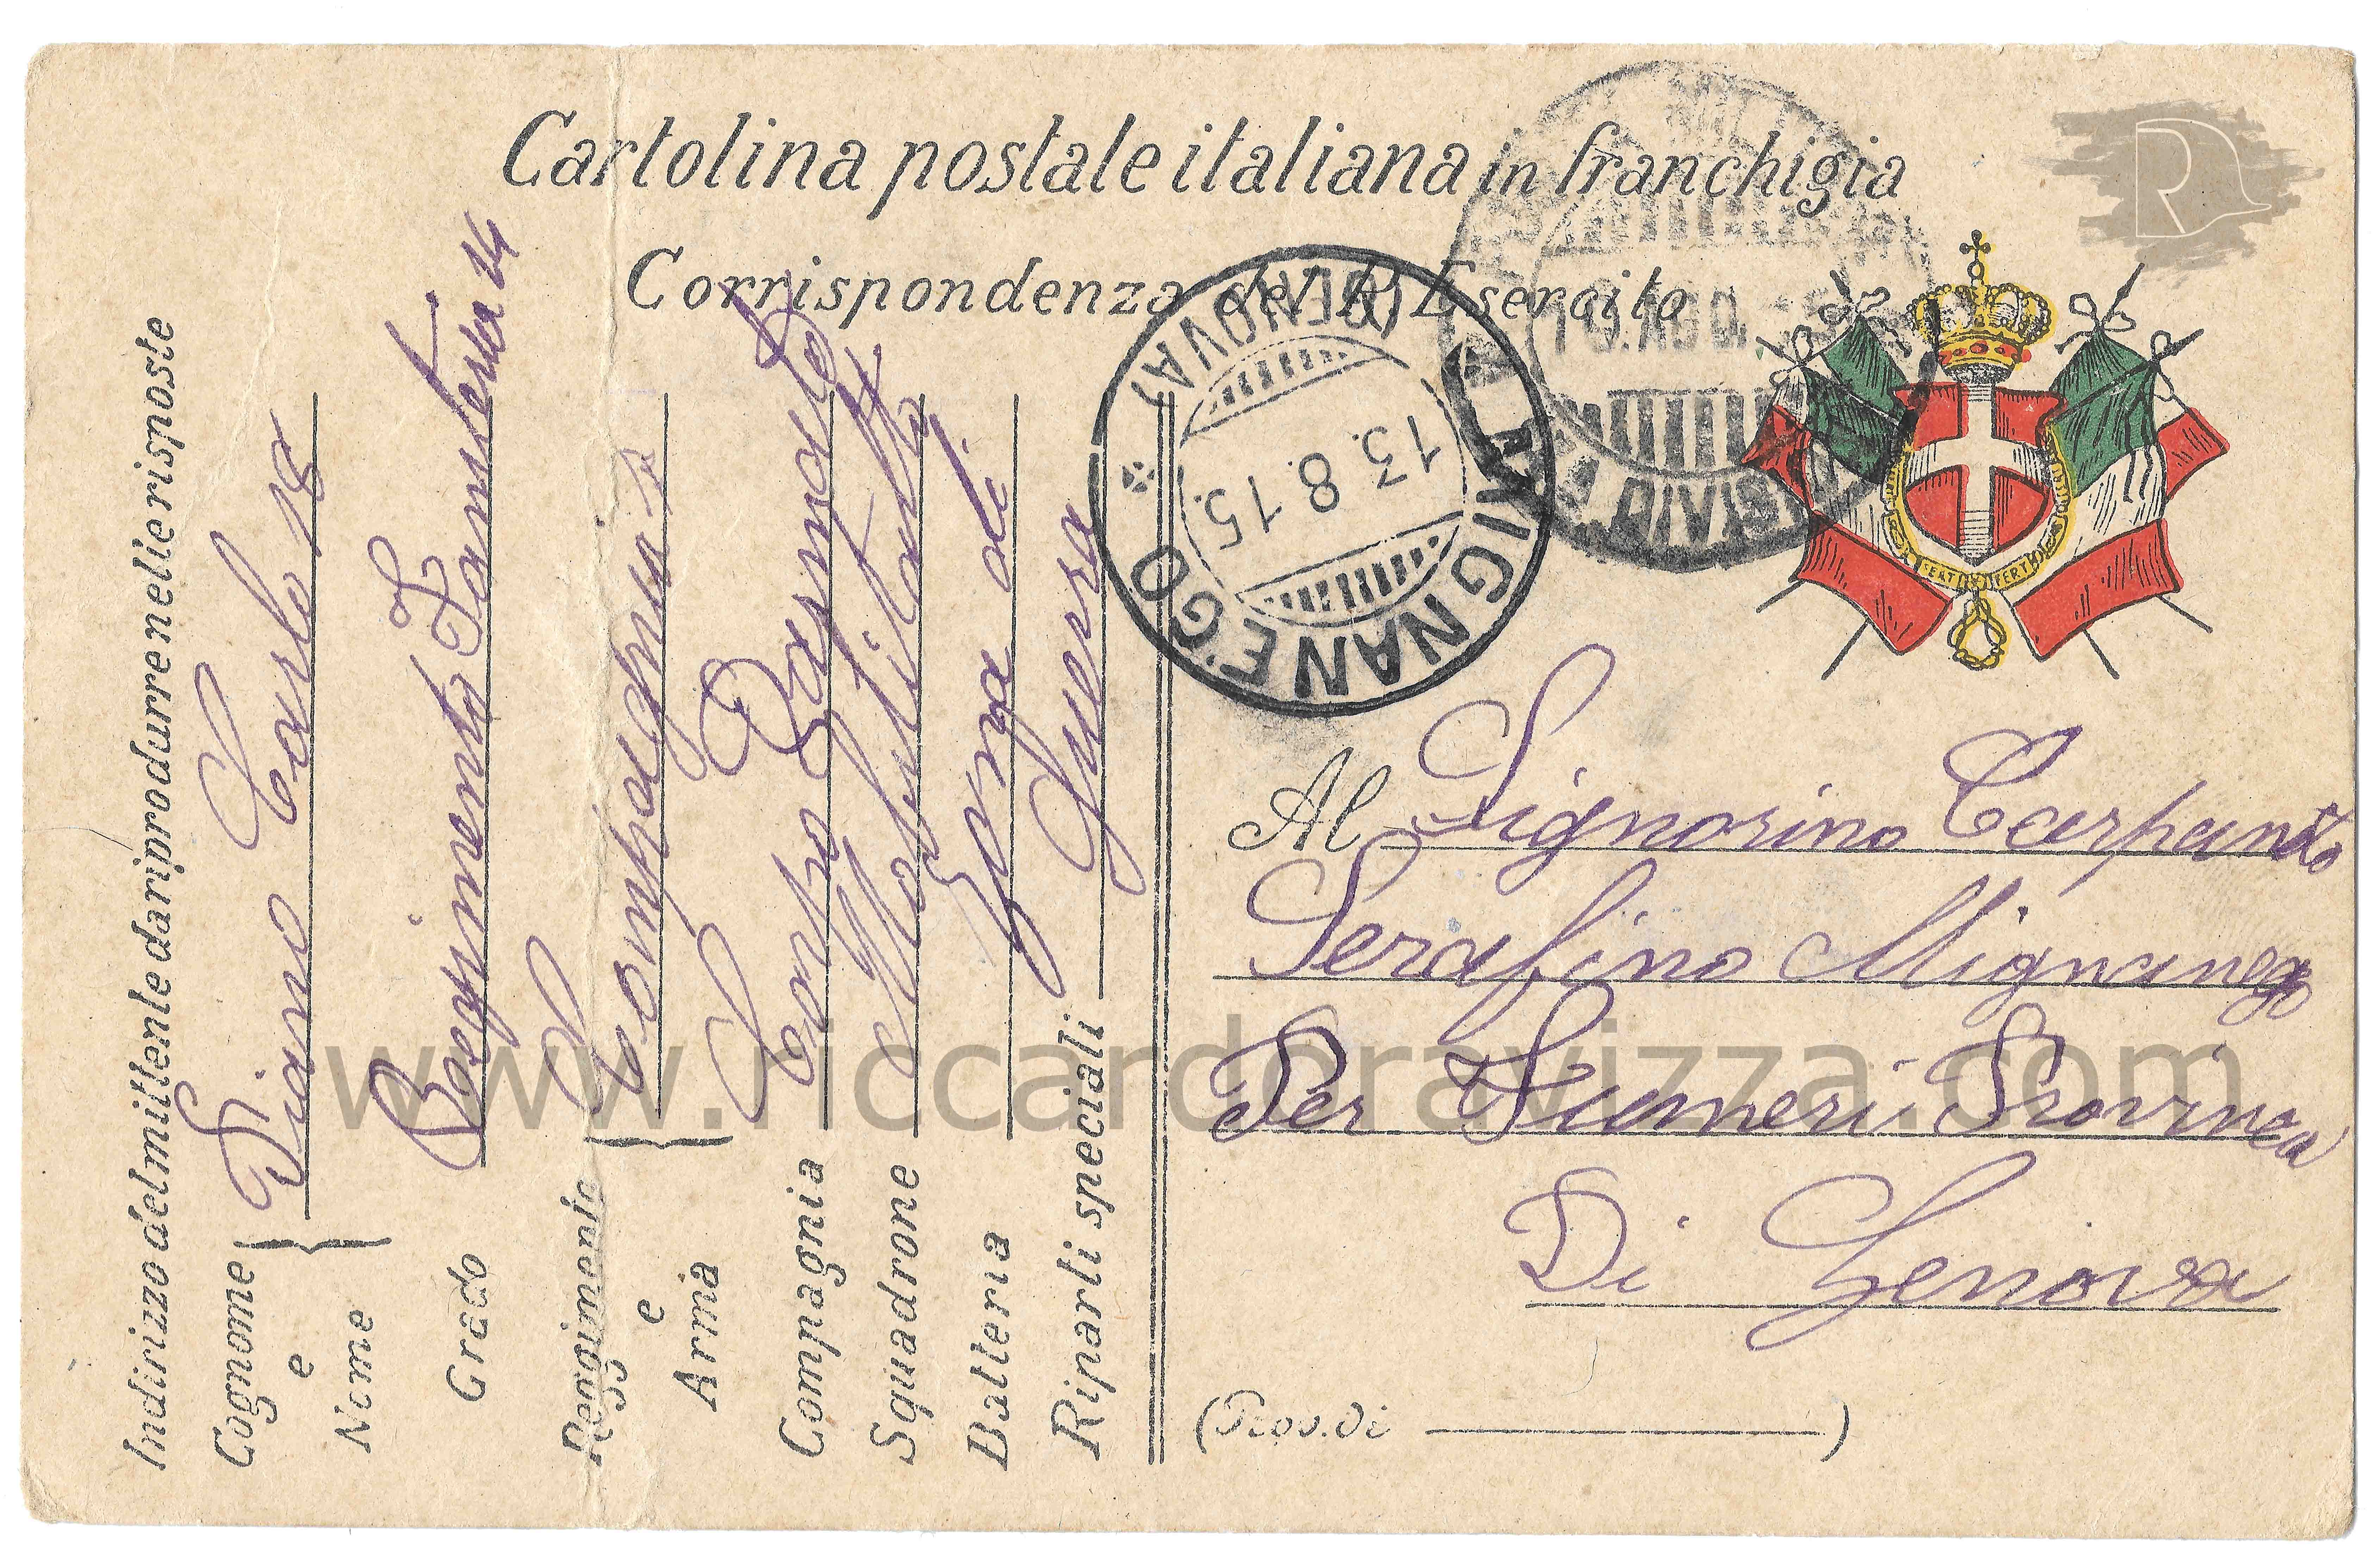 Cartolina postale italiana in franchigia
Corrispondenza del R. Esercito
MIGNANEGO
(GENOVA)
13.8.15.
DIVISIO
FERT FERT
Indirizzo del mittente da riprodurre nelle risposte
Cognome e Nome
Piano Carlo 18
Grado
Reggimento Fanteria 14
Reggimento e Arma
Compagnia
Compagnia
Corpo D'armata
Squadrone
Mobilitatto
Batteria
Zona di
Riparti speciali
Guerra
Al Signorino Carpaneto
Serafino Mignanego
Per Fumeri Provincia
Di Genova
(Prov. di )
www.riccardoravizza.com
R